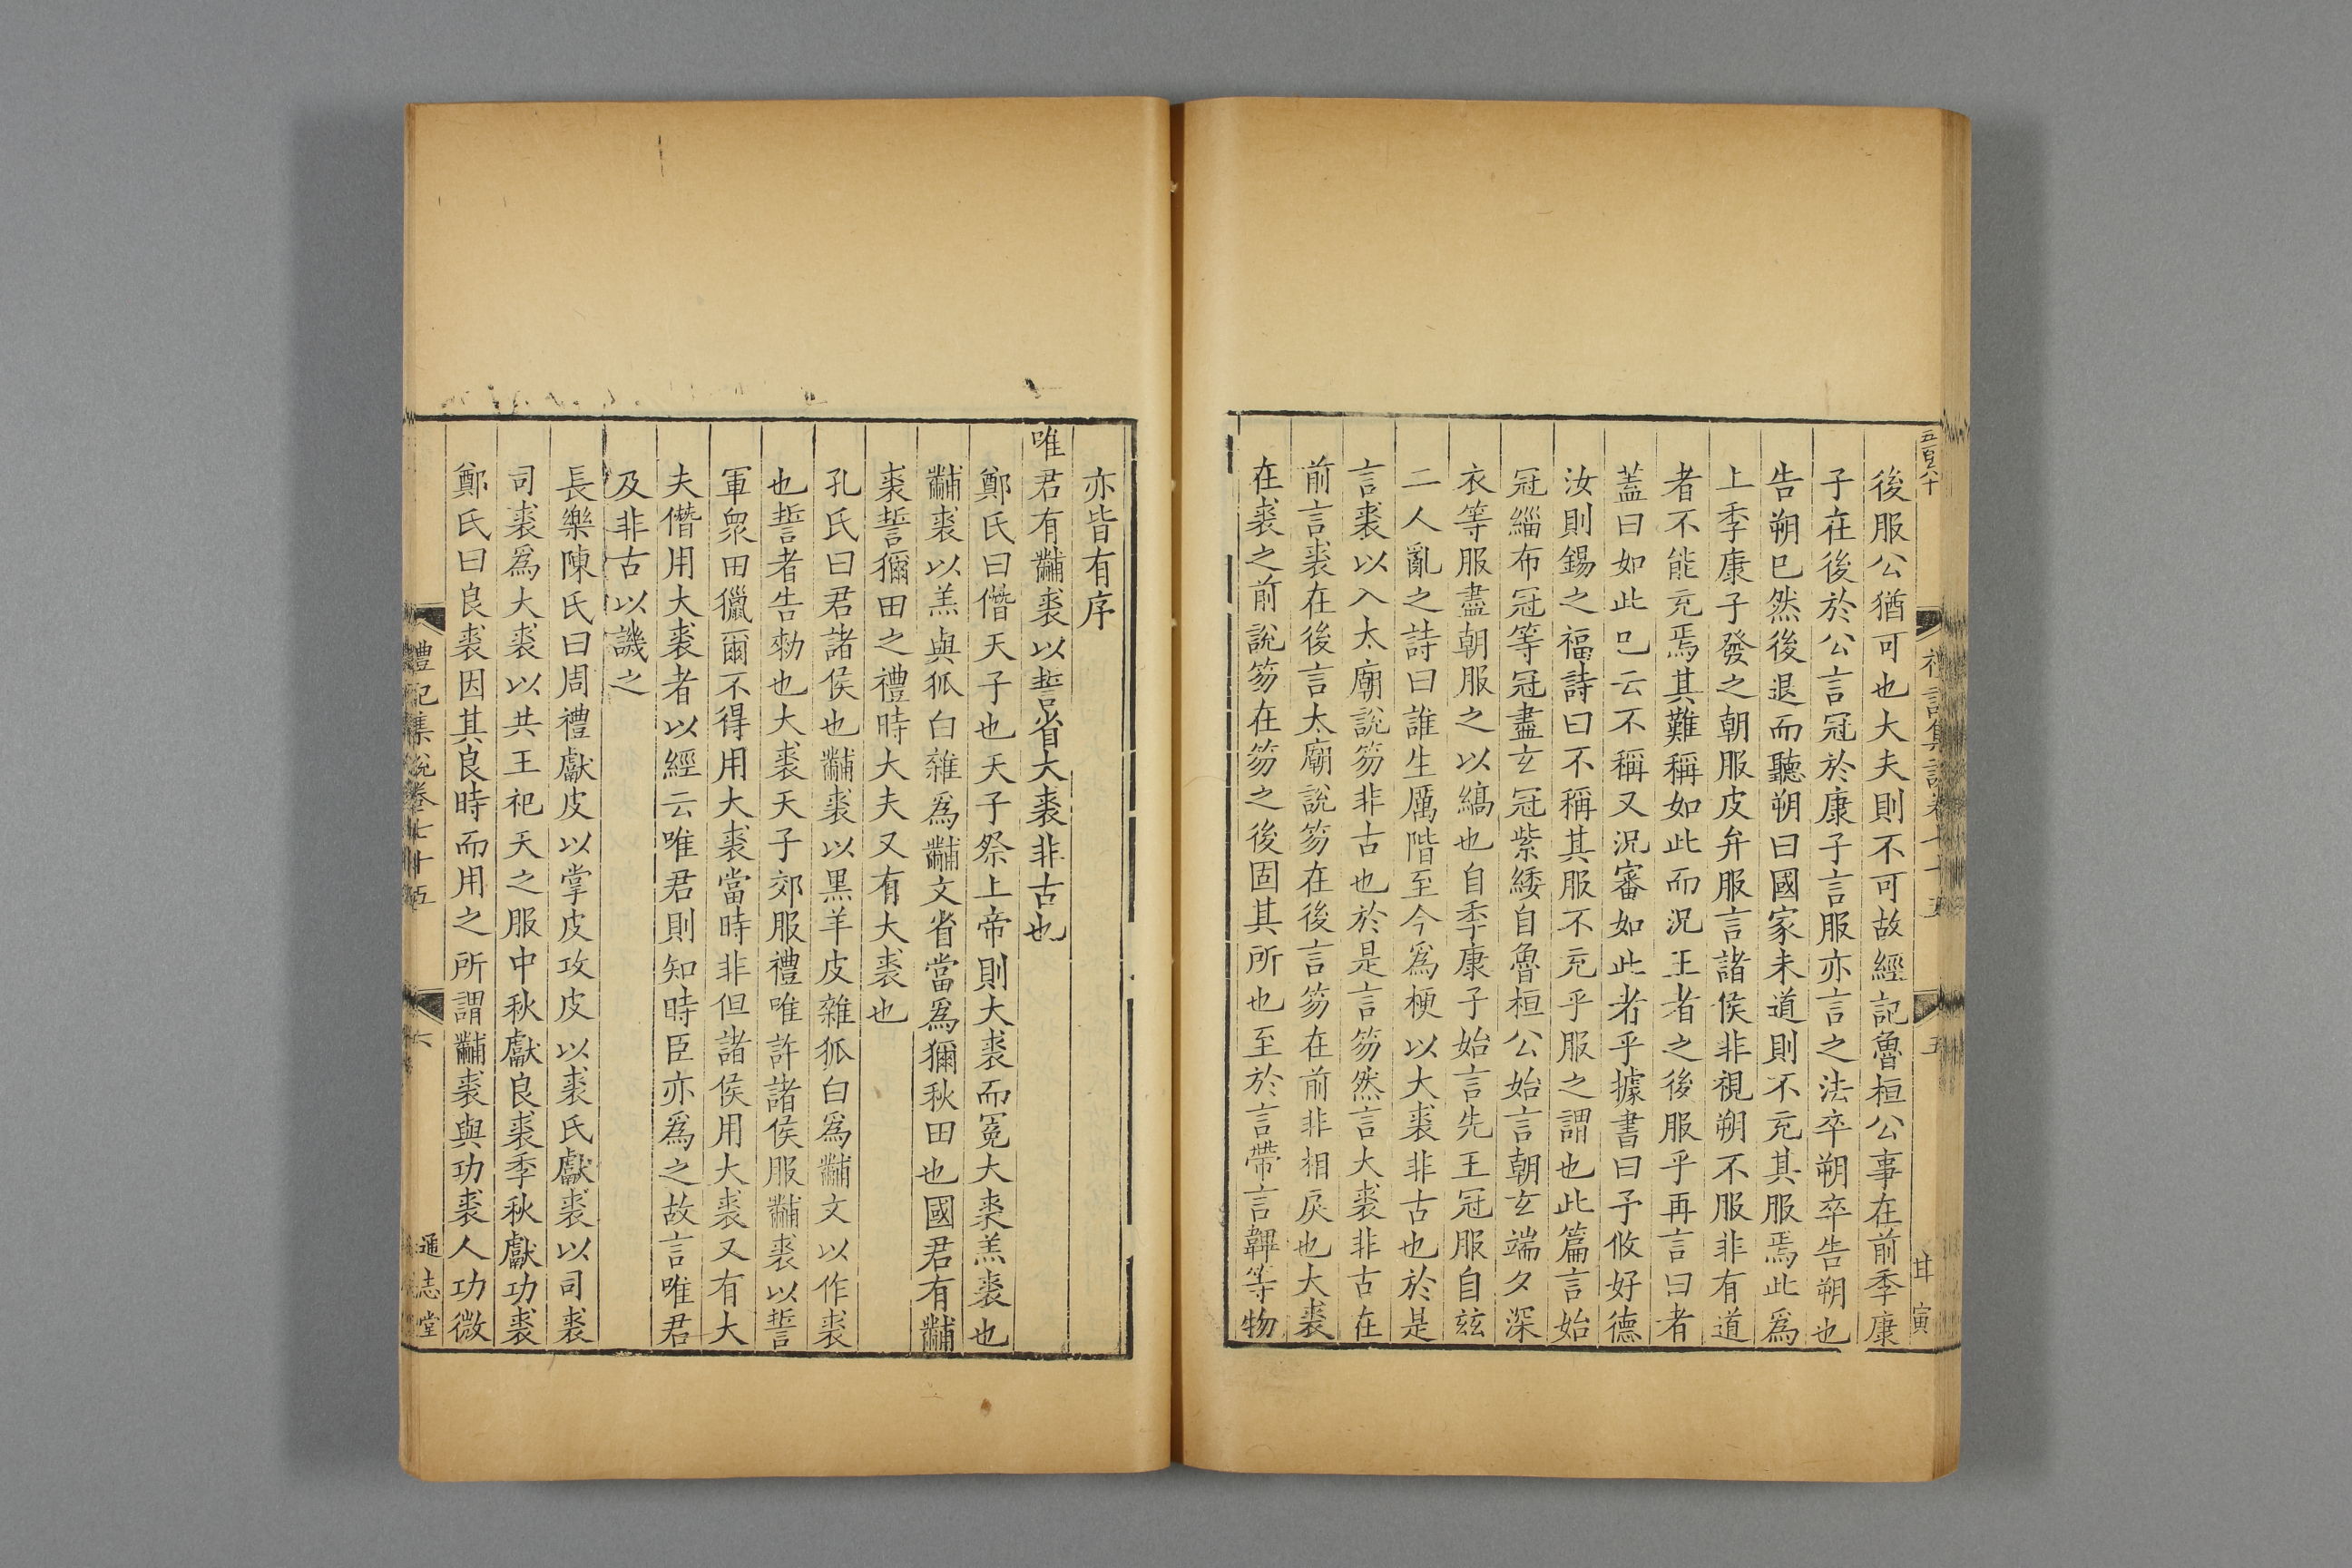 五百八十
後服公猶可也大夫則不可故經記魯桓公事在前季康
子在後於公言冠於康子言服亦言之法卒朔卒告朔也
告朔巳然後退而聽朔曰國家未道則不充其服焉此爲
上季康子發之朝服皮弁服言諸侯非視朔不服非有道
者不能充焉其難稱如此而況王者之後服乎再言曰者
蓋曰如此巳云不稱又況審如此者乎據書曰予攸好德
汝則錫之福詩曰不稱其服不充乎服之謂也此篇言始
冠緇布冠等冠盡玄冠紫緌自魯桓公始言朝玄端夕深
衣等服盡朝服之以縞也自季康子始言先王冠服自玆
二人亂之詩曰誰生厲階至今爲梗以大裘非古也於是
言裘以入太廟說笏非古也於是言笏然言大裘非古在
前言裘在後言太廟說笏在後言笏在前非相戾也大裘
在裘之前說笏在笏之後固其所也至於言帶言韠等物
亦皆有序
唯君有黼裘以誓省大裘非古也
鄭氏曰僭天子也天子祭上帝則大裘而冕大裘羔裘也
黼裘以羔與狐白雜爲黼文省當爲獮秋田也國君有黼
裘誓獮田之禮時大夫又有大裘也
孔氏曰君諸侯也黼裘以黑羊皮雜狐白爲黼文以作裘
也誓者告勑也大裘天子郊服禮唯許諸侯服黼裘以誓
軍衆田獵爾不得用大裘當時非但諸侯用大裘又有大
夫僭用大裘者以經云唯君則知時臣亦爲之故言唯君
及非古以譏之
長樂陳氏曰周禮獻皮以掌皮攻皮以裘氏獻裘以司裘
司裘爲大裘以共王祀天之服中秋獻良裘季秋獻功裘
鄭氏曰良裘因其良時而用之所謂黼裘與功裘人功微
禮記集說卷七十五
六
通志堂